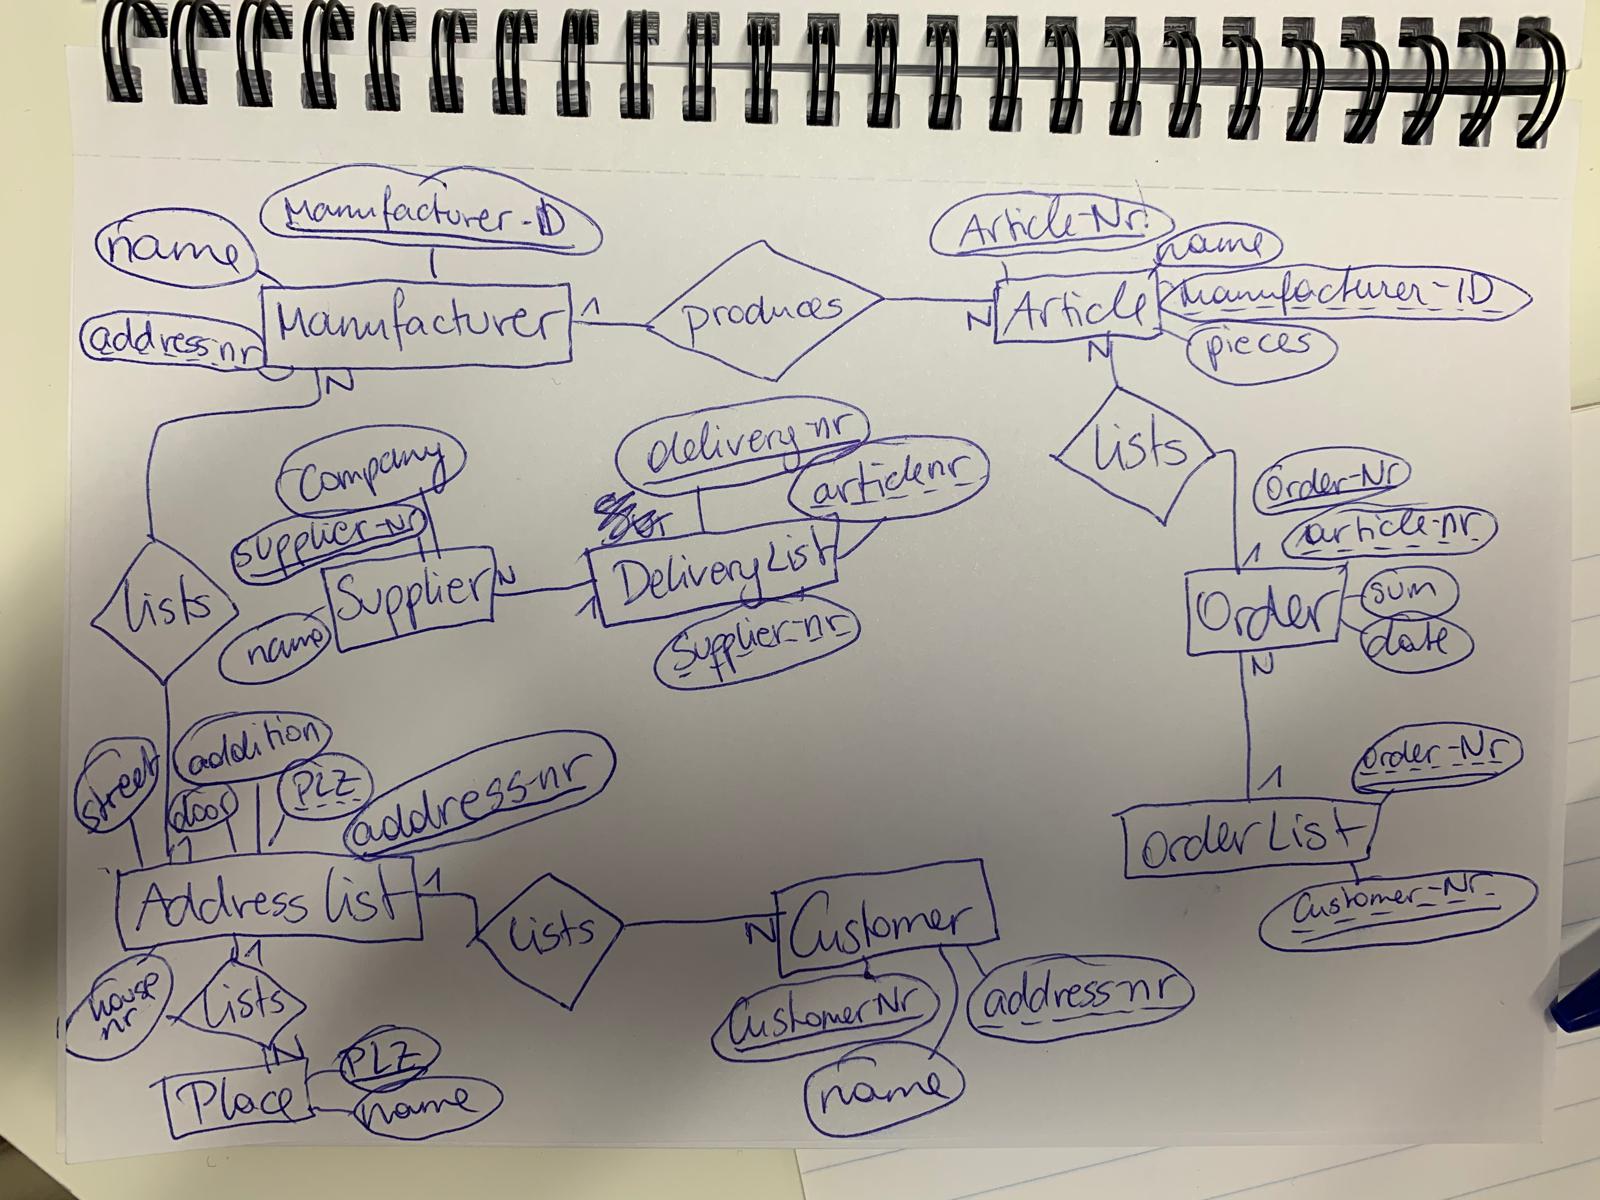 Manufacturer-ID
name
Manufacturer
address-nr
1
N
produces
N
Article-Nr.
name
Article
Manufacturer-ID
pieces
N
lists
Company
supplier-nr
Supplier
name
N
1
delivery-nr
article-nr
Delivery List
Supplier-nr
Order-Nr
article-nr
1
Order
sum
date
N
1
Order-Nr
Order List
Customer-Nr.
lists
street
addition
door
PLZ
address-nr
1
Address list
1
lists
N
Customer
CustomerNr
address-nr
name
house
nr
1
lists
N
Place
PLZ
name